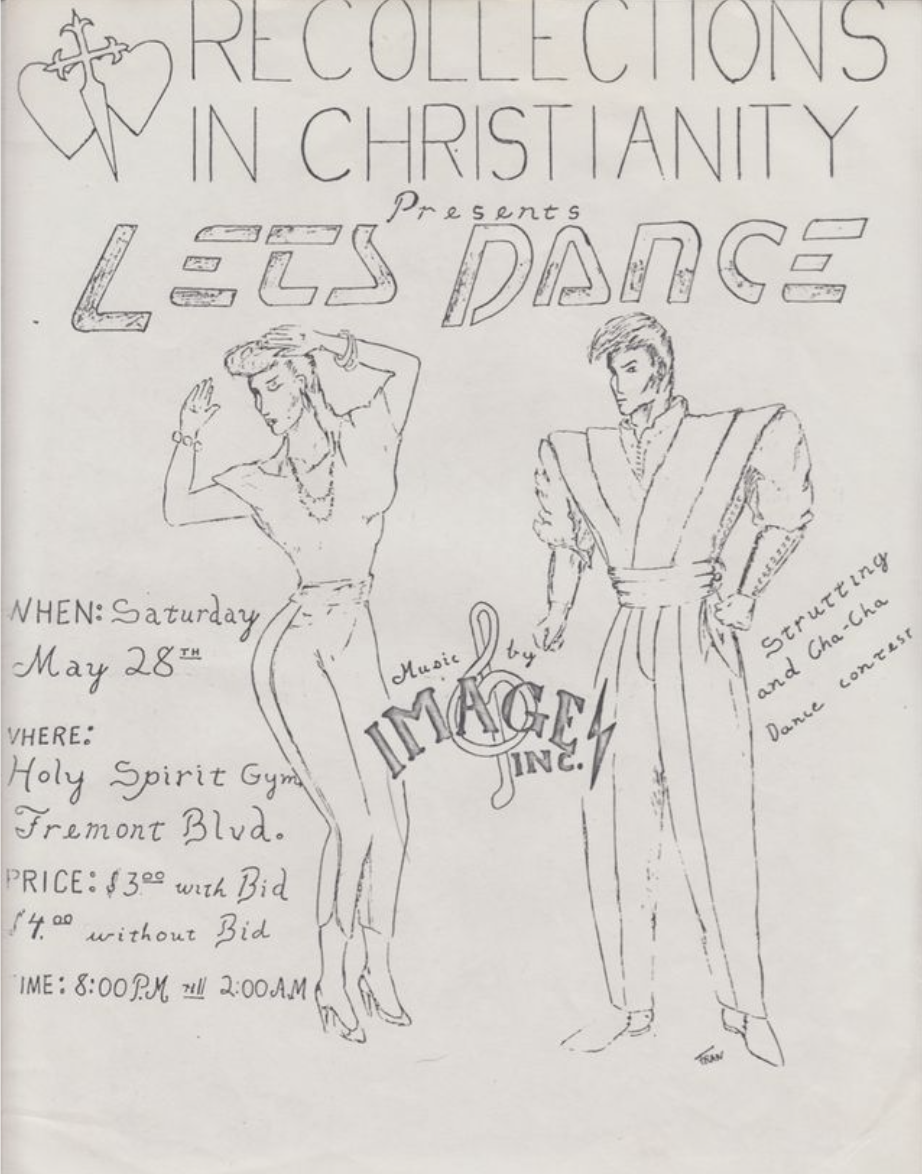 RECOLLECTIONS
IN CHRISTIANITY
Presents
LETS DANCE
WHEN: Saturday
May 28TH
WHERE:
Holy Spirit Gym
Fremont Blvd.
PRICE: $3.00 with Bid
$4.00 without Bid
TIME: 8:00 P.M till 2:00 A.M
Music by
IMAGE
INC.
Strutting
and Cha-Cha
Dance contest
FRAN